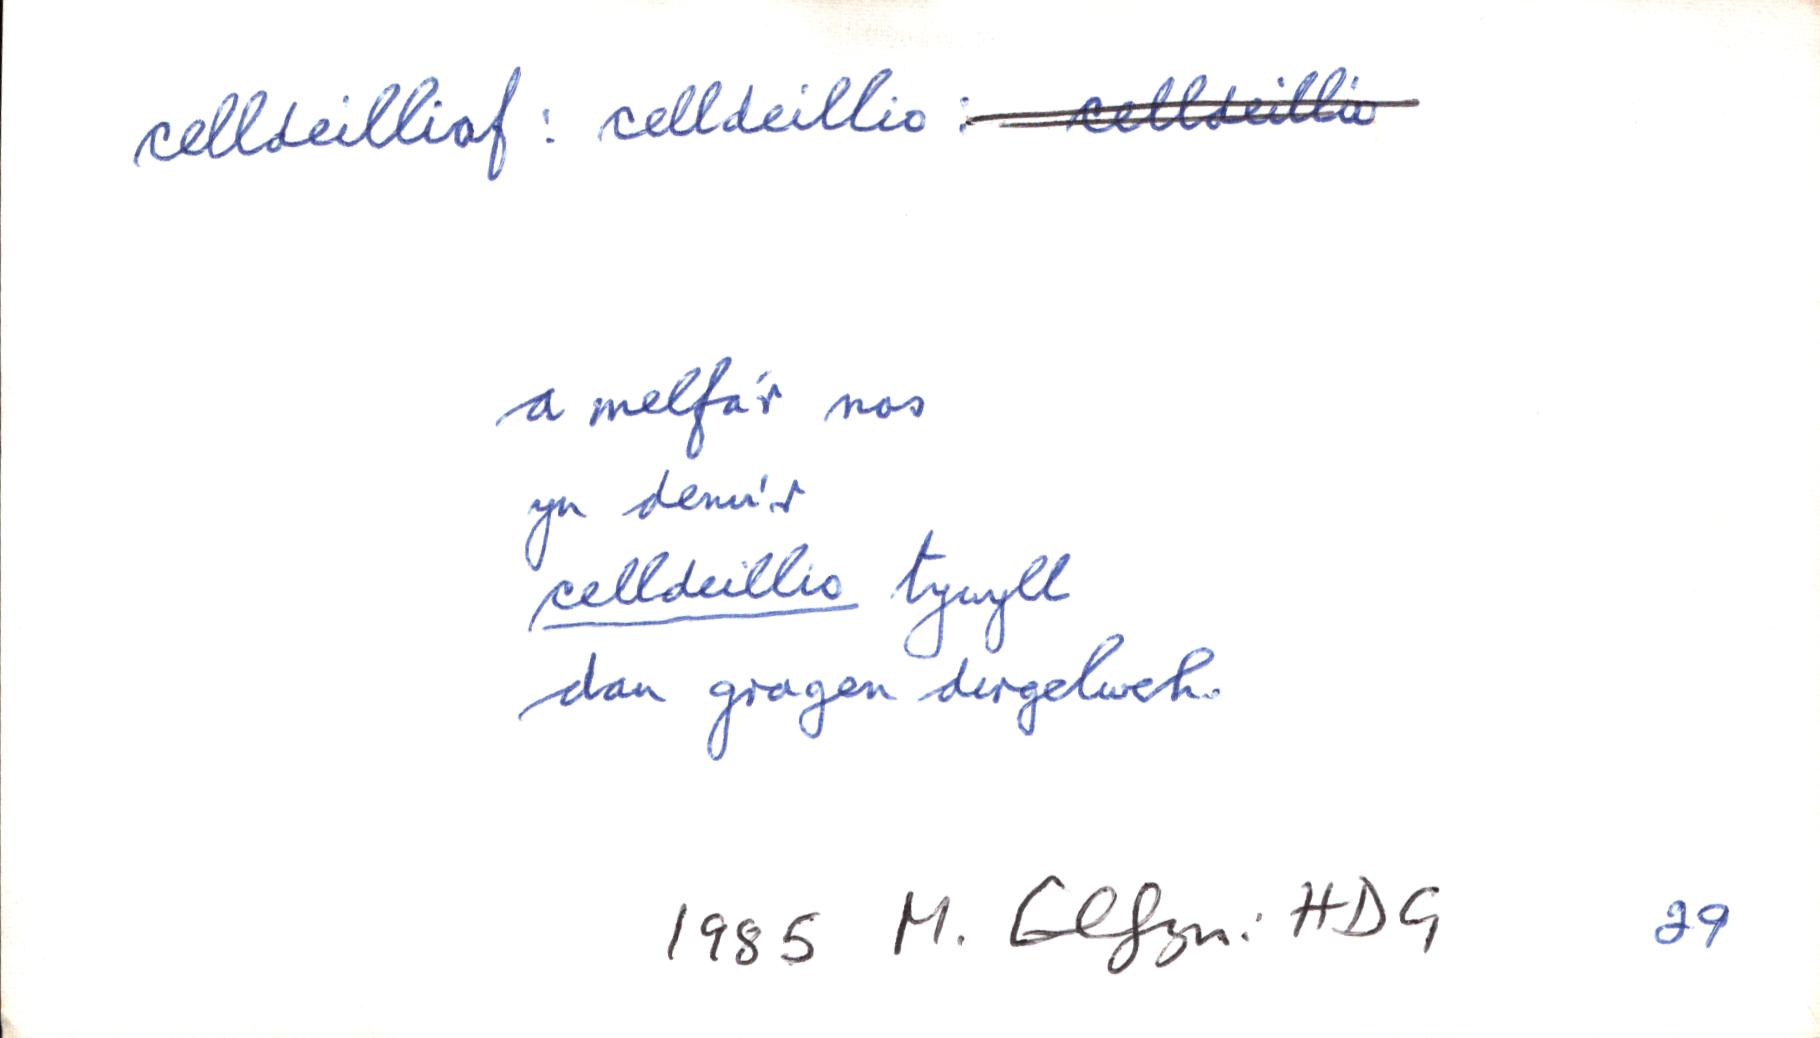 celldeilliaf : celldeillio : celldeillio
a melfa'r nos
yn denu'r
celldeillio tywyll
dan gragen dirgelwch.
1985 M. Elfyn: HDG 29